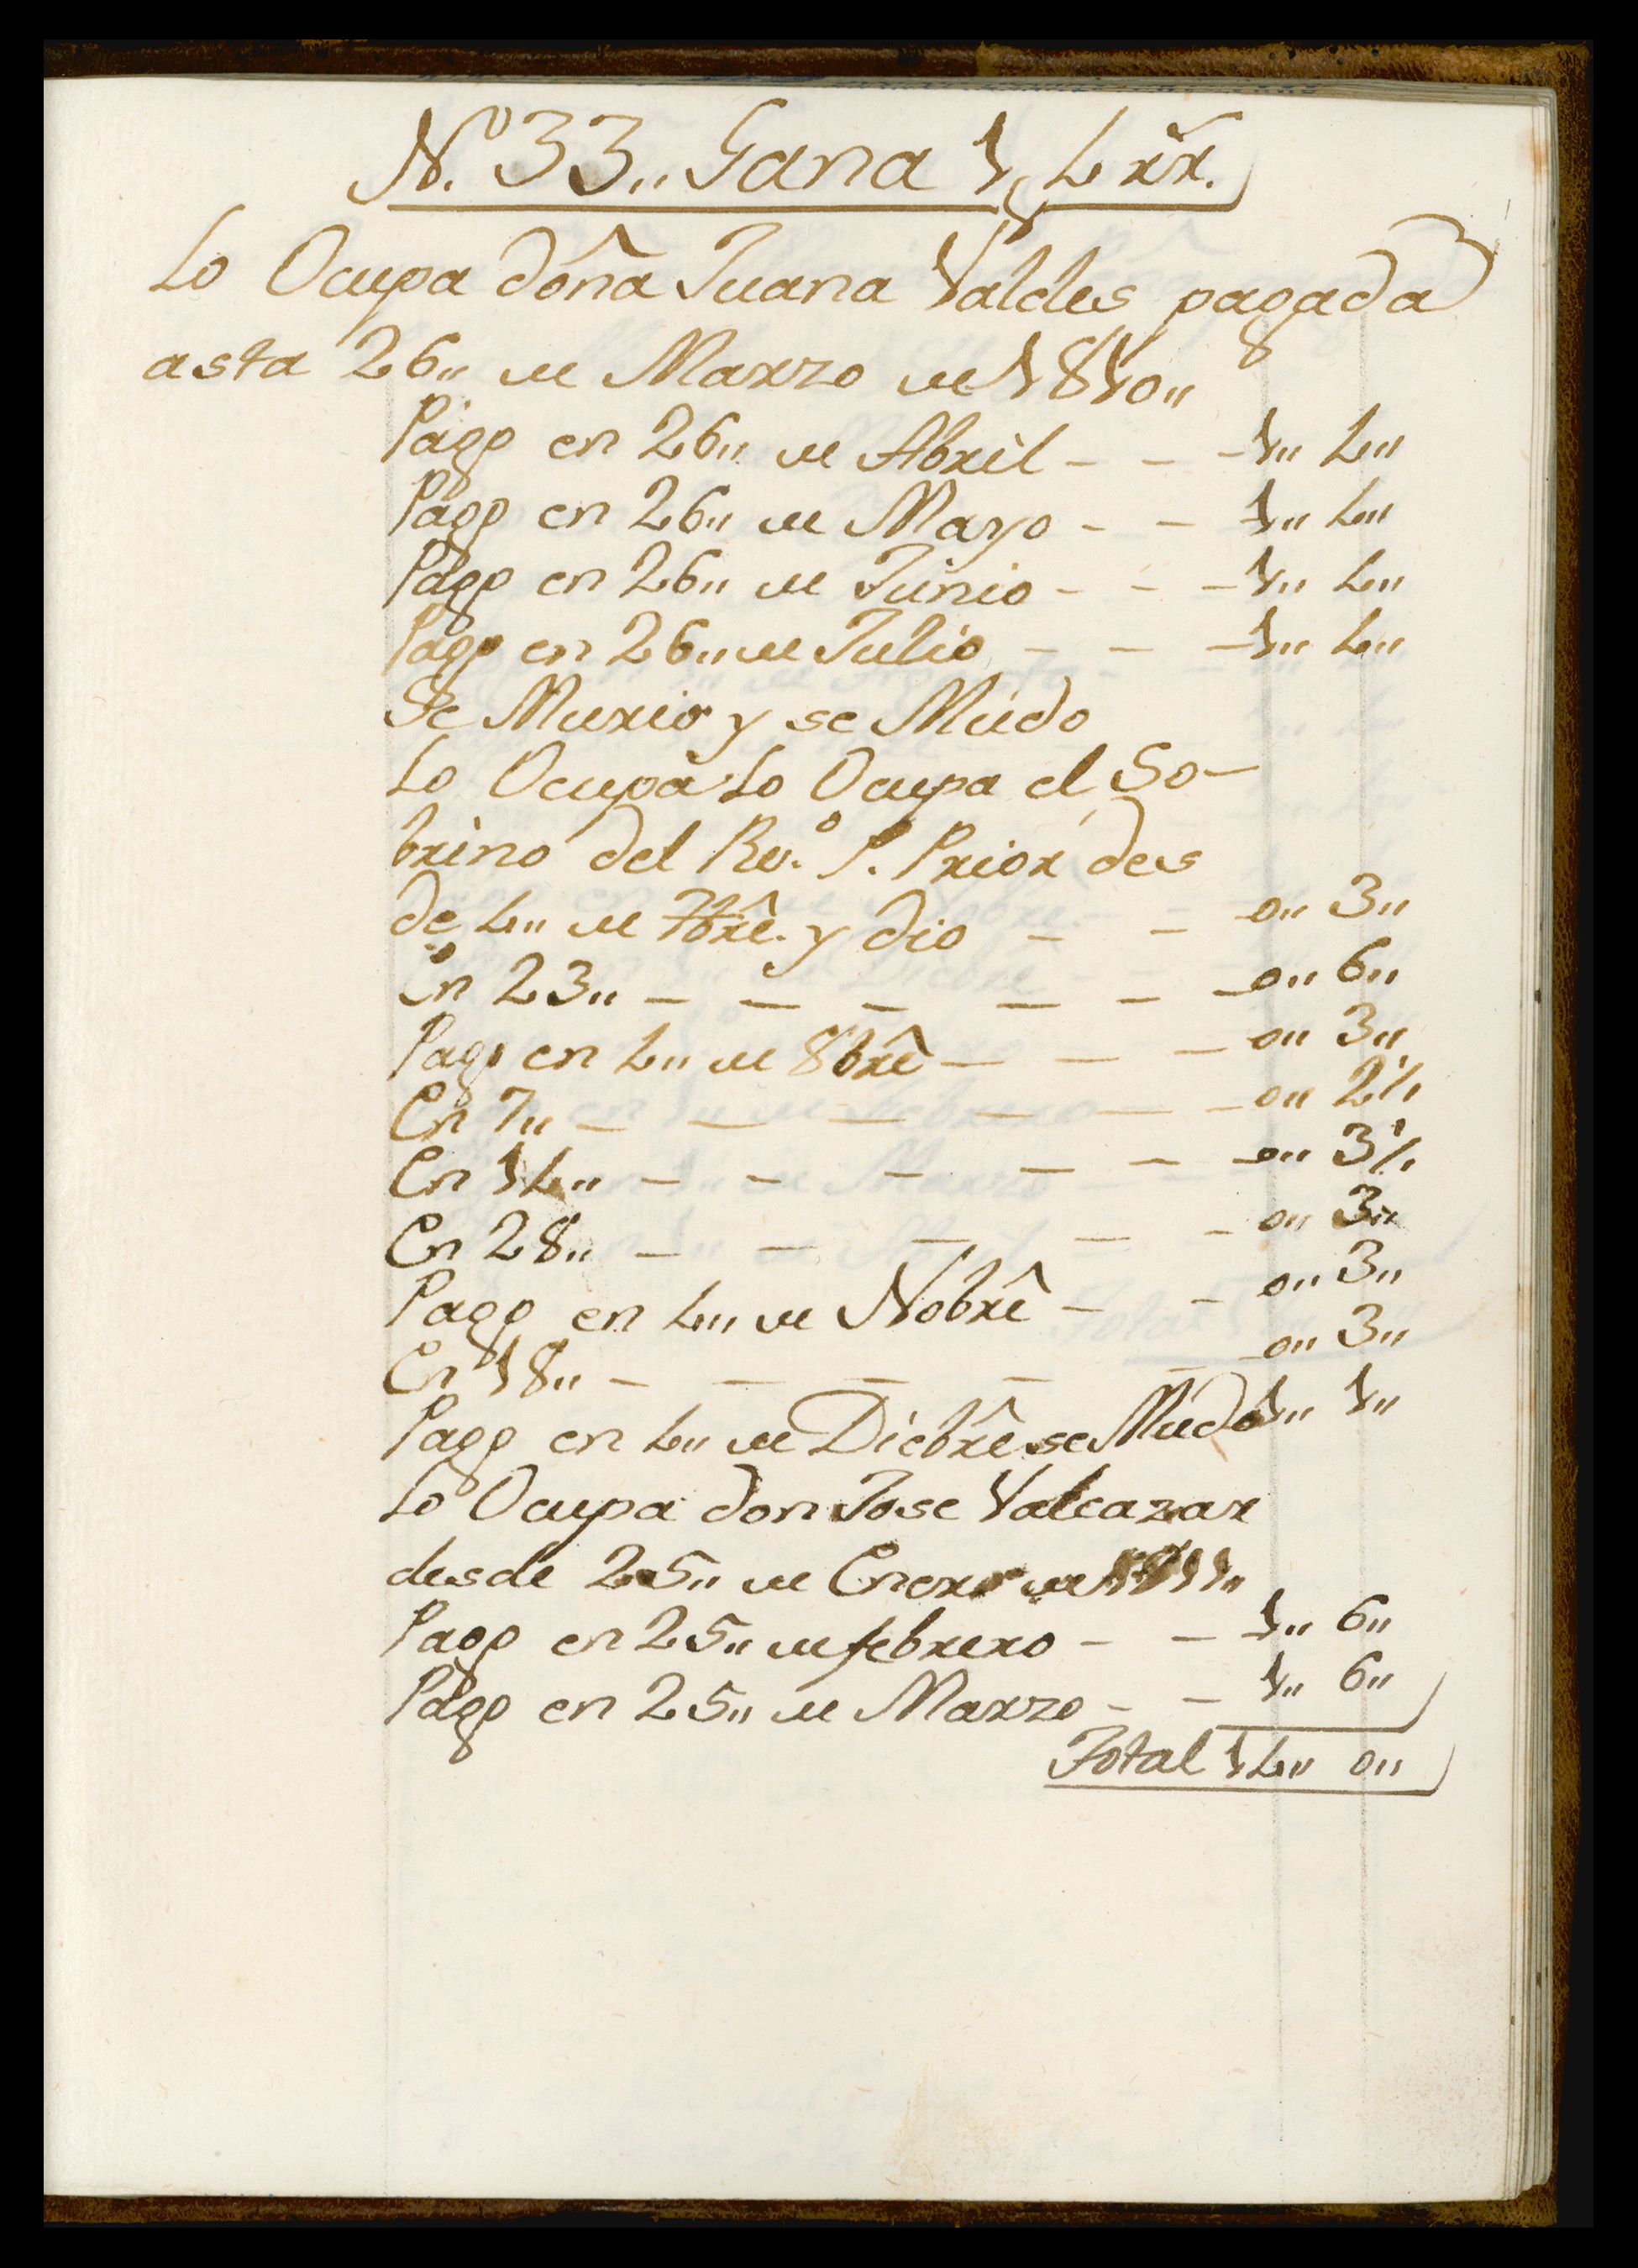 Nº. 33„ Gana 1„ 4 rr.
Lo Ocupa doña Juana Valdes pagada
asta 26„ de Marzo de 1810„
Pago en 26„ de Abril - - - 1„ 4„
Pago en 26„ de Mayo - - 1„ 4„
Pago en 26„ de Junio - - - 1„ 4„
Pago en 26„ de Julio - - - 1„ 4„
Se Murio y se Mudo
Lo Ocupa Lo Ocupa el So-
brino del Rv.º P. Prior des
de 4„ de 7bre. y dio - - 0„ 3„
En 23„ - - - - - - 0„ 6„
Pago en 4„ de 8bre - - - 0„ 3„
En 7„ - - - - - - 0„ 2½
En 14„ - - - - - - 0„ 3½
En 28„ - - - - - 0„ 3„
Pago en 4„ de Nobre - - 0„ 3„
En 18„ - - - - - - 0„ 3„
Pago en 4„ de Diebre se Mudo 1„ 1„
Lo Ocupa don Jose Valcazar
desde 25„ de Enero de 1811„
Pago en 25„ de febrero - - 1„ 6„
Pago en 25„ de Marzo - - 1„ 6„
Total 14„ 0„